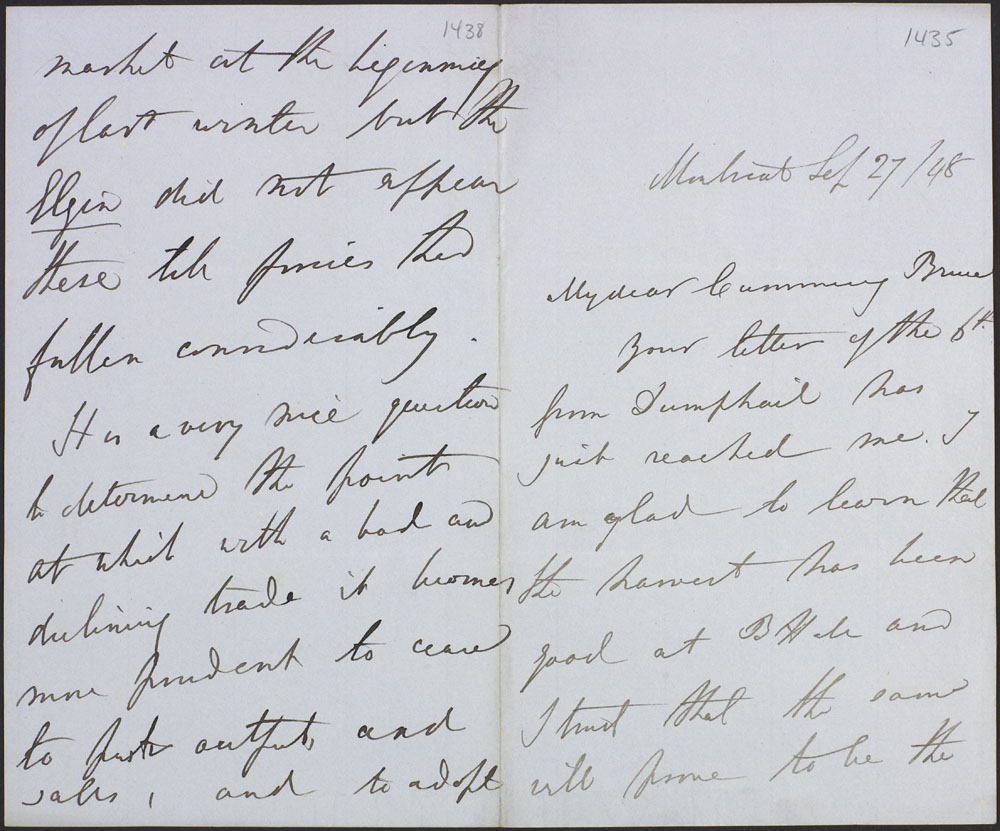 1438
market at the beginning
of last winter but the
Elgin did not appear
there till prices had
fallen considerably.
It is a very nice question
to determine the point
at which with a bad and
declining trade it becomes
more prudent to cease
to push output and
sales, and to adopt
1435
Montreal Sep 27/48
My dear Cumming Bruce
Your letter of the 6th
from Dumphail has
just reached me. I
am glad to learn that
the harvest has been
good at BHall and
I trust that the same
will prove to be the